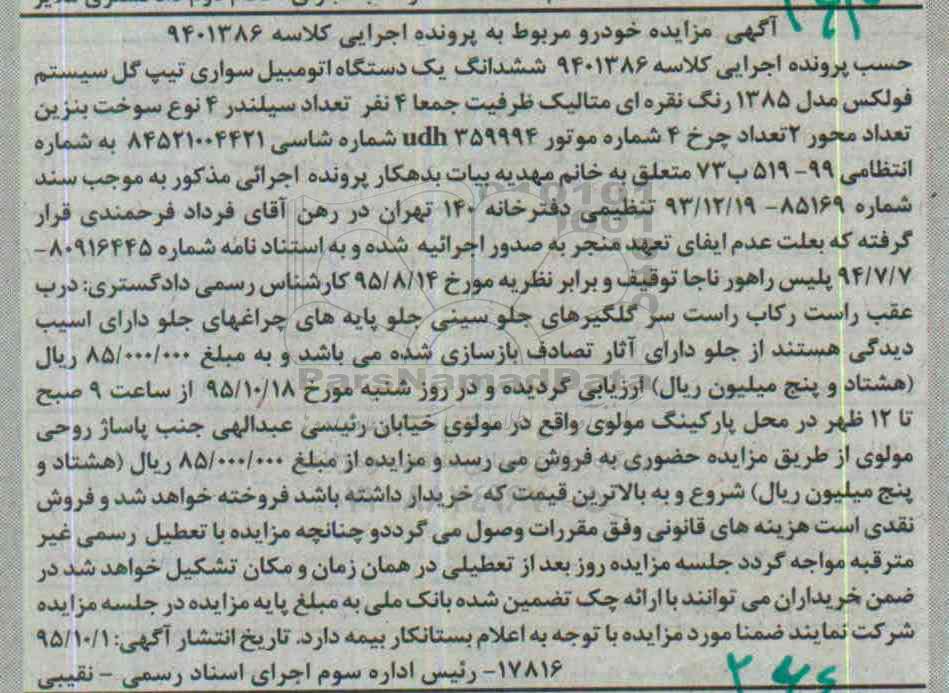 آگهی مزایده خودرو مربوط به پرونده اجرایی کلاسه ۹۴۰۱۳۸۶
حسب پرونده اجرایی کلاسه ۹۴۰۱۳۸۶ ششدانگ یک دستگاه اتومبیل سواری تیپ گل سیستم
فولکس مدل ۱۳۸۵ رنگ نقره ای متالیک ظرفیت جمعا ۴ نفر تعداد سیلندر ۴ نوع سوخت بنزین
تعداد محور ۲ تعداد چرخ ۴ شماره موتور udh ۳۵۹۹۹۴ شماره شاسی ۸۴۵۲۱۰۰۴۴۲۱ به شماره
انتظامی ۹۹- ۵۱۹ ب۷۳ متعلق به خانم مهدیه بیات بدهکار پرونده اجرائی مذکور به موجب سند
شماره ۸۵۱۶۹- ۹۳/۱۲/۱۹ تنظیمی دفترخانه ۱۴۰ تهران در رهن آقای فرداد فرحمندی قرار
گرفته که بعلت عدم ایفای تعهد منجر به صدور اجرائیه شده و به استناد نامه شماره ۸۰۹۱۶۴۴۵-
۹۴/۷/۷ پلیس راهور ناجا توقیف و برابر نظریه مورخ ۹۵/۸/۱۴ کارشناس رسمی دادگستری: درب
عقب راست رکاب راست سر گلگیرهای جلو سینی جلو پایه های چراغهای جلو دارای اسیب
دیدگی هستند از جلو دارای آثار تصادف بازسازی شده می باشد و به مبلغ ۸۵/۰۰۰/۰۰۰ ریال
(هشتاد و پنج میلیون ریال) ارزیابی گردیده و در روز شنبه مورخ ۹۵/۱۰/۱۸ از ساعت ۹ صبح
تا ۱۲ ظهر در محل پارکینگ مولوی واقع در مولوی خیابان رئیسی عبدالهی جنب پاساژ روحی
مولوی از طریق مزایده حضوری به فروش می رسد و مزایده از مبلغ ۸۵/۰۰۰/۰۰۰ ریال (هشتاد و
پنج میلیون ریال) شروع و به بالاترین قیمت که خریدار داشته باشد فروخته خواهد شد و فروش
نقدی است هزینه های قانونی وفق مقررات وصول می گرددو چنانچه مزایده با تعطیل رسمی غیر
مترقبه مواجه گردد جلسه مزایده روز بعد از تعطیلی در همان زمان و مکان تشکیل خواهد شد در
ضمن خریداران می توانند با ارائه چک تضمین شده بانک ملی به مبلغ پایه مزایده در جلسه مزایده
شرکت نمایند ضمنا مورد مزایده با توجه به اعلام بستانکار بیمه دارد. تاریخ انتشار آگهی: ۹۵/۱۰/۱
۱۷۸۱۶- رئیس اداره سوم اجرای اسناد رسمی - نقیبی
ParsNamadData